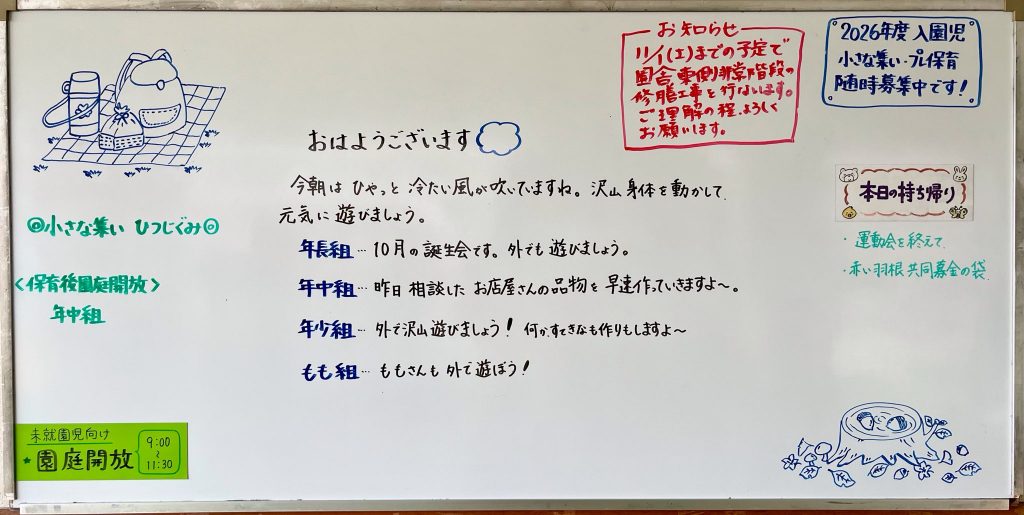 おはようございます
今朝は ひやっと 冷たい風が吹いていますね。沢山身体を動かして
元気に遊びましょう。
年長組…10月の誕生会です。外でも遊びましょう。
年中組…昨日相談したお店屋さんの品物を早速作っていきますよ～。
年少組…外で沢山遊びましょう！ 何かすてきなも作りもしますよ～
もも組…ももさんも外で遊ぼう！
◎小さな集い ひつじぐみ◎
<保育後園庭開放>
年中組
未就園児向け
★園庭開放
9:00
～
11:30
お知らせ
11/1(土)までの予定で
園舎東側非常階段の
修繕工事を行ないます。
ご理解の程、よろしく
お願いします。
2026年度 入園児
小さな集い・プレ保育
随時募集中です！
本日の持ち帰り
・運動会を終えて
・赤い羽根共同募金の袋